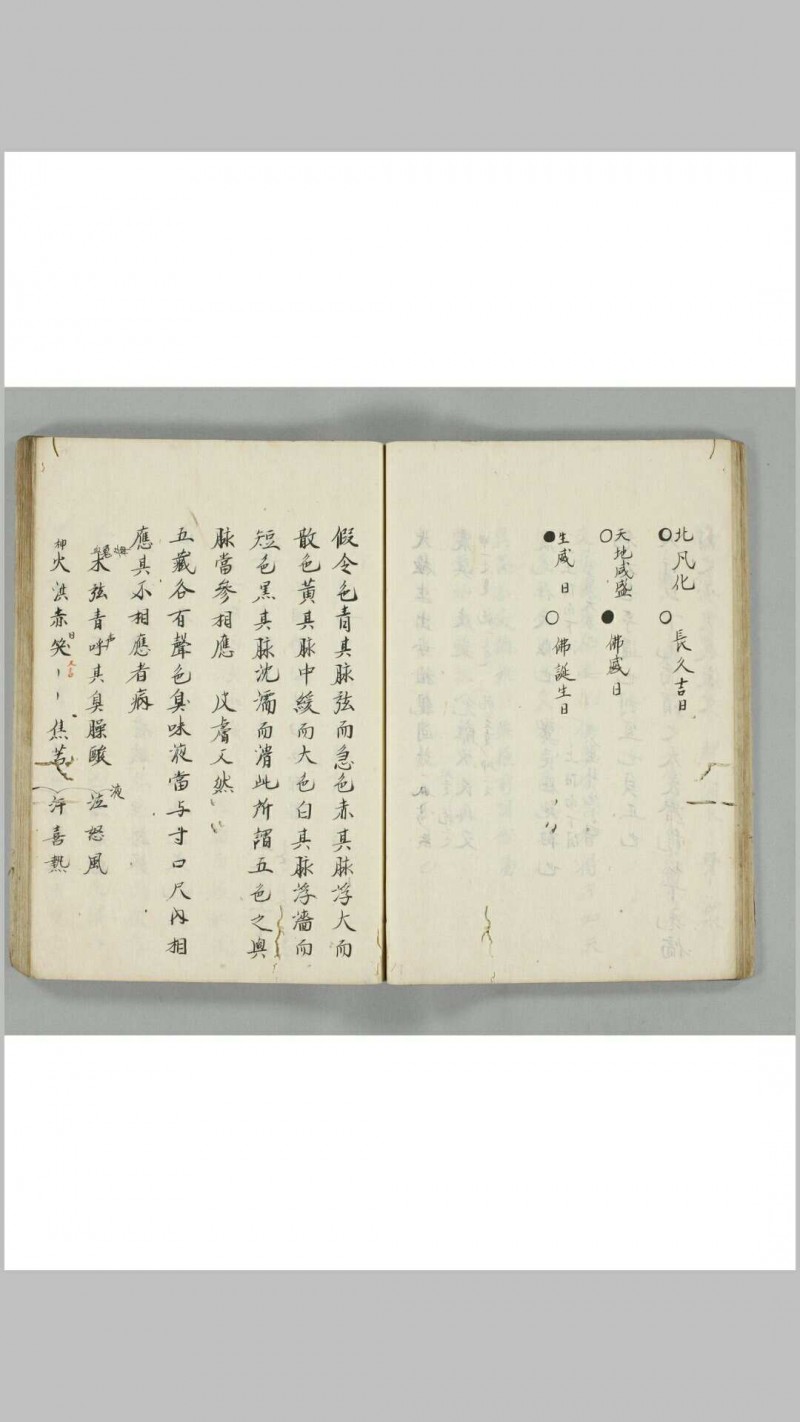 ●北凡化 ○長久吉日
○天地咸盛 ●佛咸日
●生咸日 ○佛誕生日
假令色青其脉弦而急色赤其脉浮大而
散色黃其脉中緩而大色白其脉浮濇而
短色黑其脉沈濡而滑此所謂五色之與
脉當參相應 皮膚又然
五藏各有聲色臭味液當与寸口尺內相
應其不相應者病
木弦青呼其臭臊酸 泣怒風
液
神火洪赤笑〻〻焦苦 汗喜熱